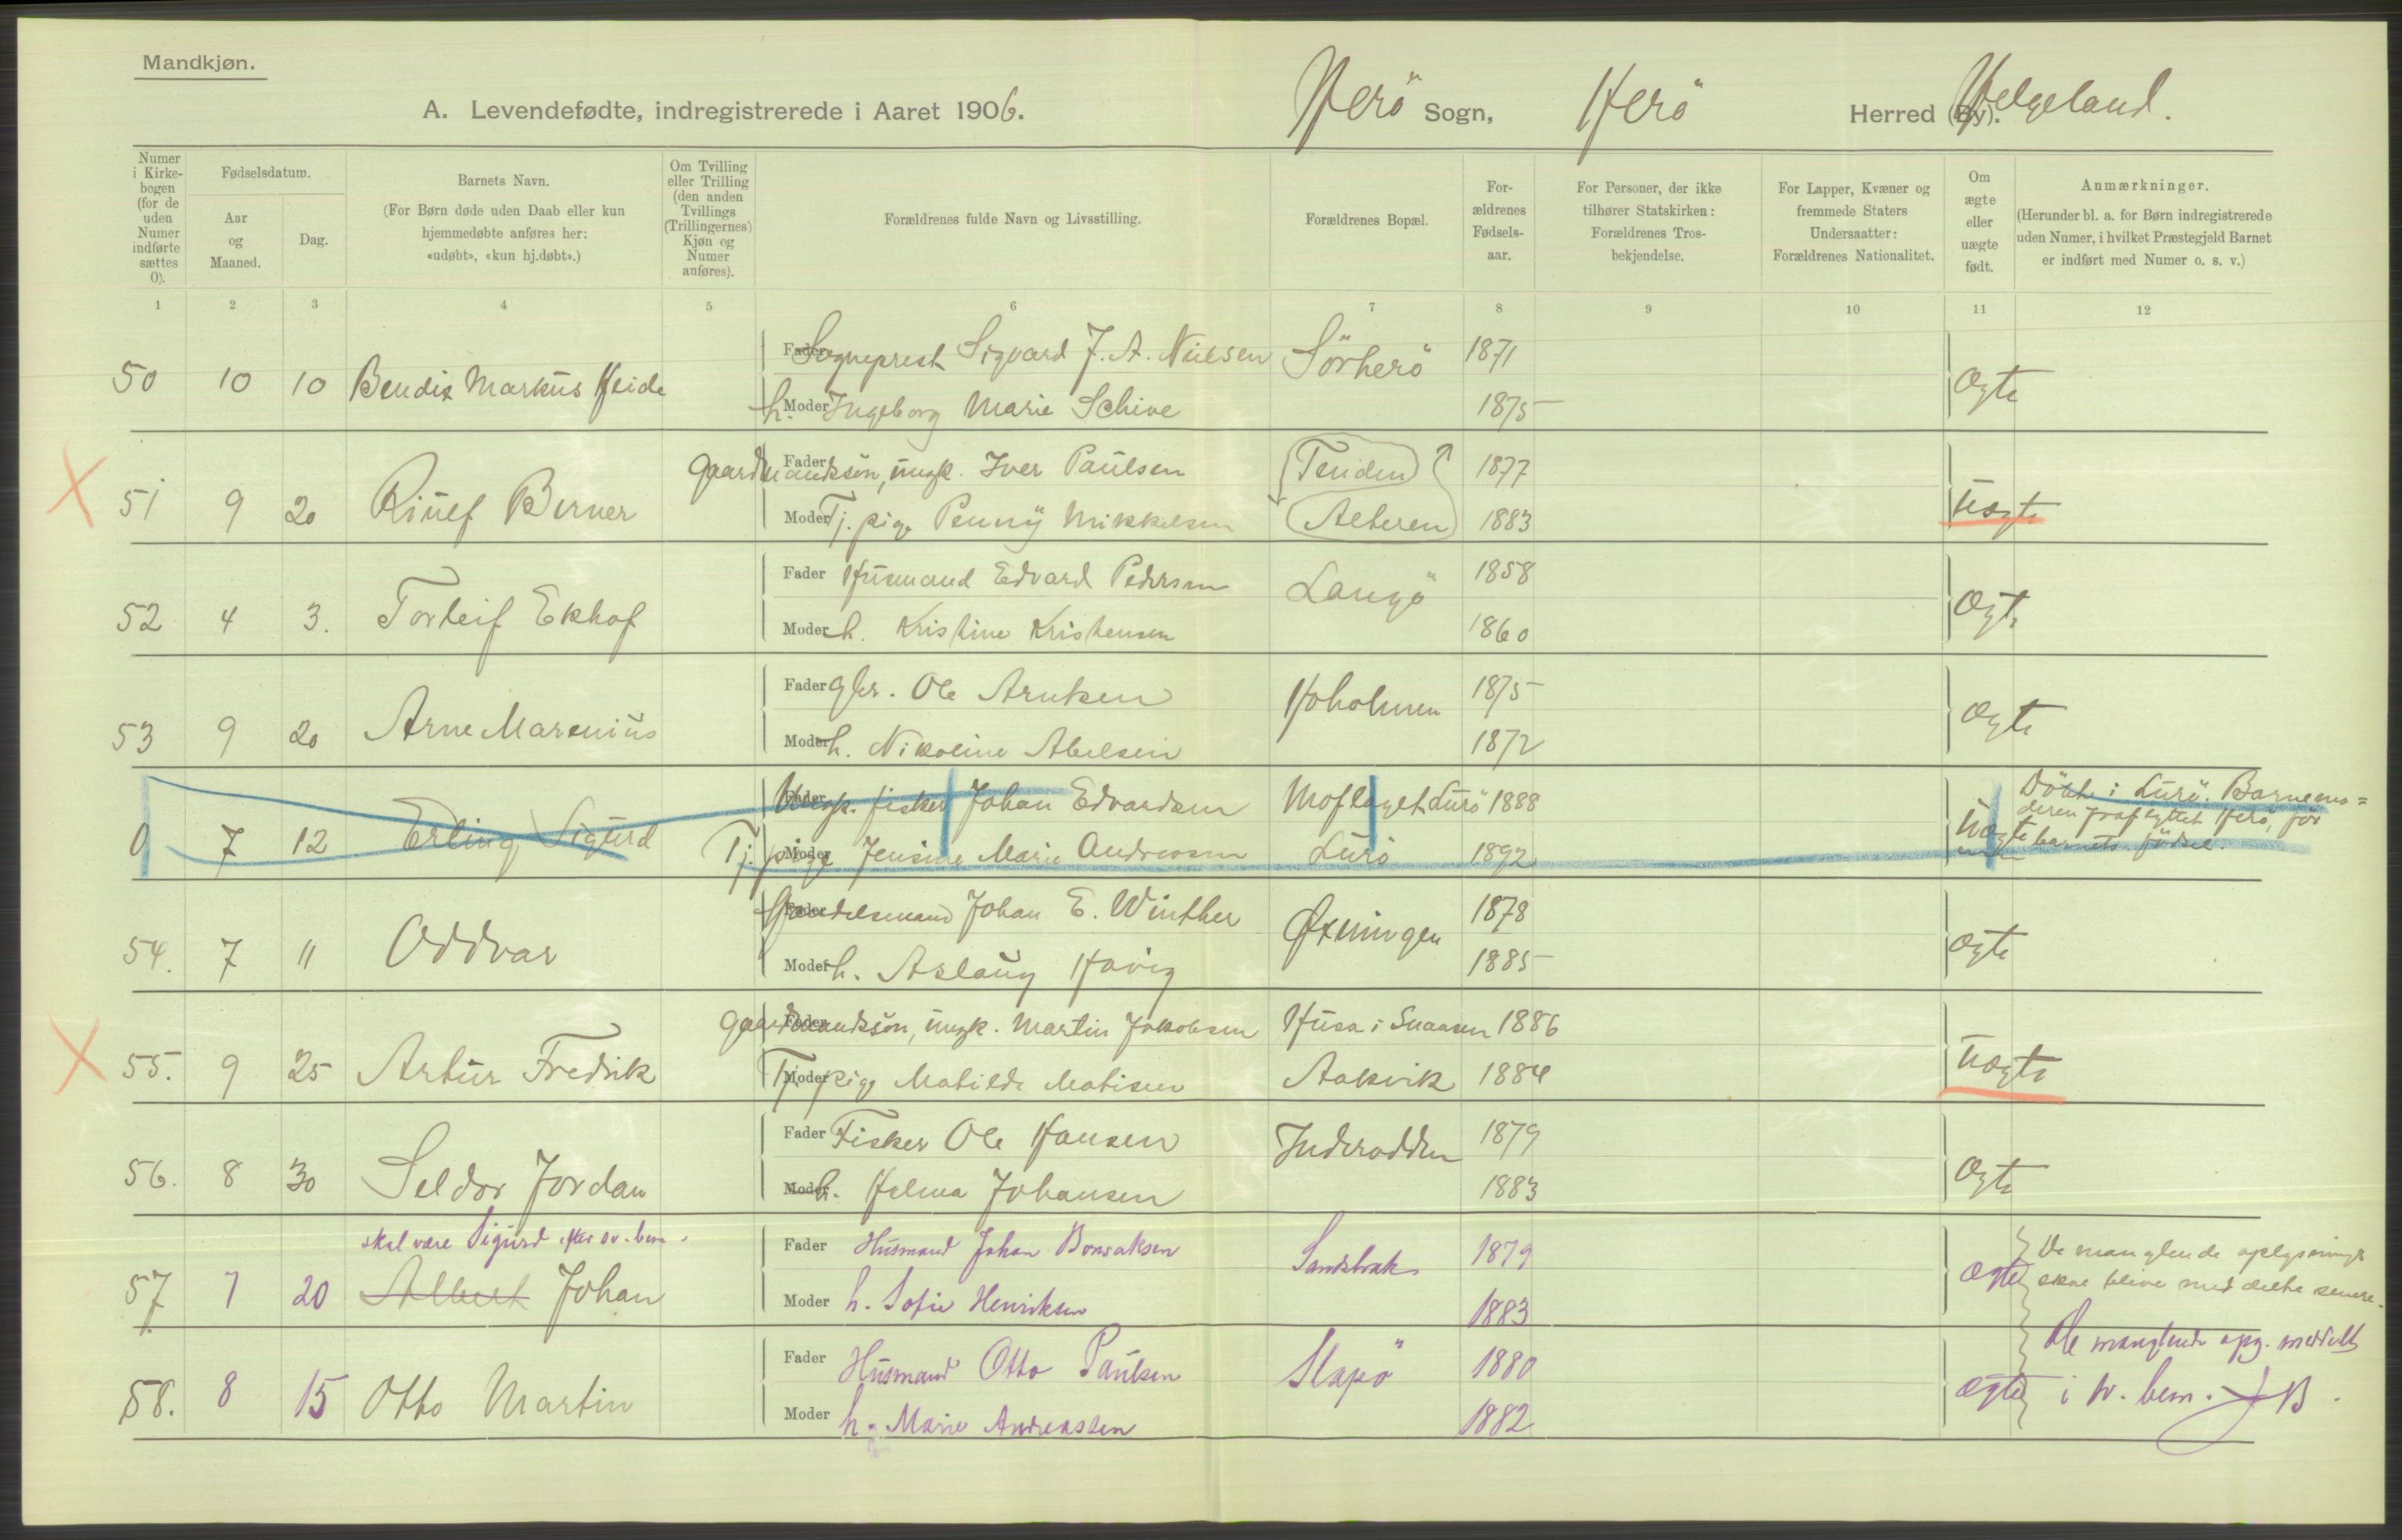 Mandkjøn.
A. Levendefødte, indregistrerede i Aaret 1906.
Herö Sogn, Herö Herred (By). Helgeland.
Numer i Kirkebogen (for de uden Numer indførte sættes 0).
Fødselsdatum.
Aar og Maaned.
Dag.
Barnets Navn.
(For Børn døde uden Daab eller kun hjemmedøbte anføres her: «udøbt», «kun hj.døbt».)
Om Tvilling eller Trilling (den anden Tvillings (Trillingernes) Kjøn og Numer anføres).
Forældrenes fulde Navn og Livsstilling.
Forældrenes Bopæl.
Forældrenes Fødselsaar.
For Personer, der ikke tilhører Statskirken: Forældrenes Trosbekjendelse.
For Lapper, Kvæner og fremmede Staters Undersaatter: Forældrenes Nationalitet.
Om ægte eller uægte født.
Anmærkninger.
(Herunder bl. a. for Børn indregistrerede uden Numer, i hvilket Præstegjeld Barnet er indført med Numer o. s. v.)
1 2 3 4 5 6 7 8 9 10 11 12
Fader Sogneprest Sigvard J. A. Nielsen Sörherö 1871
50 10 10 Bendix Markus Heide ægte
Moder h. Ingeborg Marie Schive 1875
Fader Gaardmandsön, ungk. Iver Paulsen Tenden 1877
X 51 9 20 Rinef Berner uægte
Moder Tj. pige Penny Mikkelsen Alteren 1883
Fader Husmand Edvard Pedersen Langö 1858
52 4 3. Torleif Ekhof ægte
Moder h. Kristine Kristensen 1860
Fader gbr. Ole Arntsen Hoholmen 1875
53 9 20 Arne Marenius ægte
Moder h. Nikoline Abelsen 1872
Fader Ungk. fisker Johan Edvardsen Moflaget Lurö 1888
0 7 12 Erling Sigurd uægte
Moder Tj. pige Jensine Marie Andreasen Lurö 1892
Döbt i Lurö. Barnemo=
deren fraflyttet Herö, för
barnets födsel.
Fader Handelsmand Johan E. Winther Øxningen 1878
54. 7 11 Oddvar ægte
Moder h. Aslaug Havig 1885
Fader Gaardmandsön, ungk. Martin Jakobsen Husa i Snaasen 1886
X 55. 9 25 Artur Fredrik uægte
Moder Tj. pige Matilde Matisen Aakvik 1884
Fader Fisker Ole Hansen Inderodden 1879
56. 8 30 Seldor Jordan ægte
Moder h. Helma Johansen 1883
skal være Sigurd efter sv. bem.
Fader Husmand Johan Bonsaksen Sandstrak 1879
57. 7 20 Albert Johan ægte
Moder h. Sofie Henriksen 1883
De manglende oplysninger
skal blive meddelte senere.
Fader Husmand Otto Paulsen Slapö 1880
58. 8 15 Otto Martin ægte
Moder h. Marie Andreassen 1882
De manglende opg. meddelt
i sv. bem. JB.